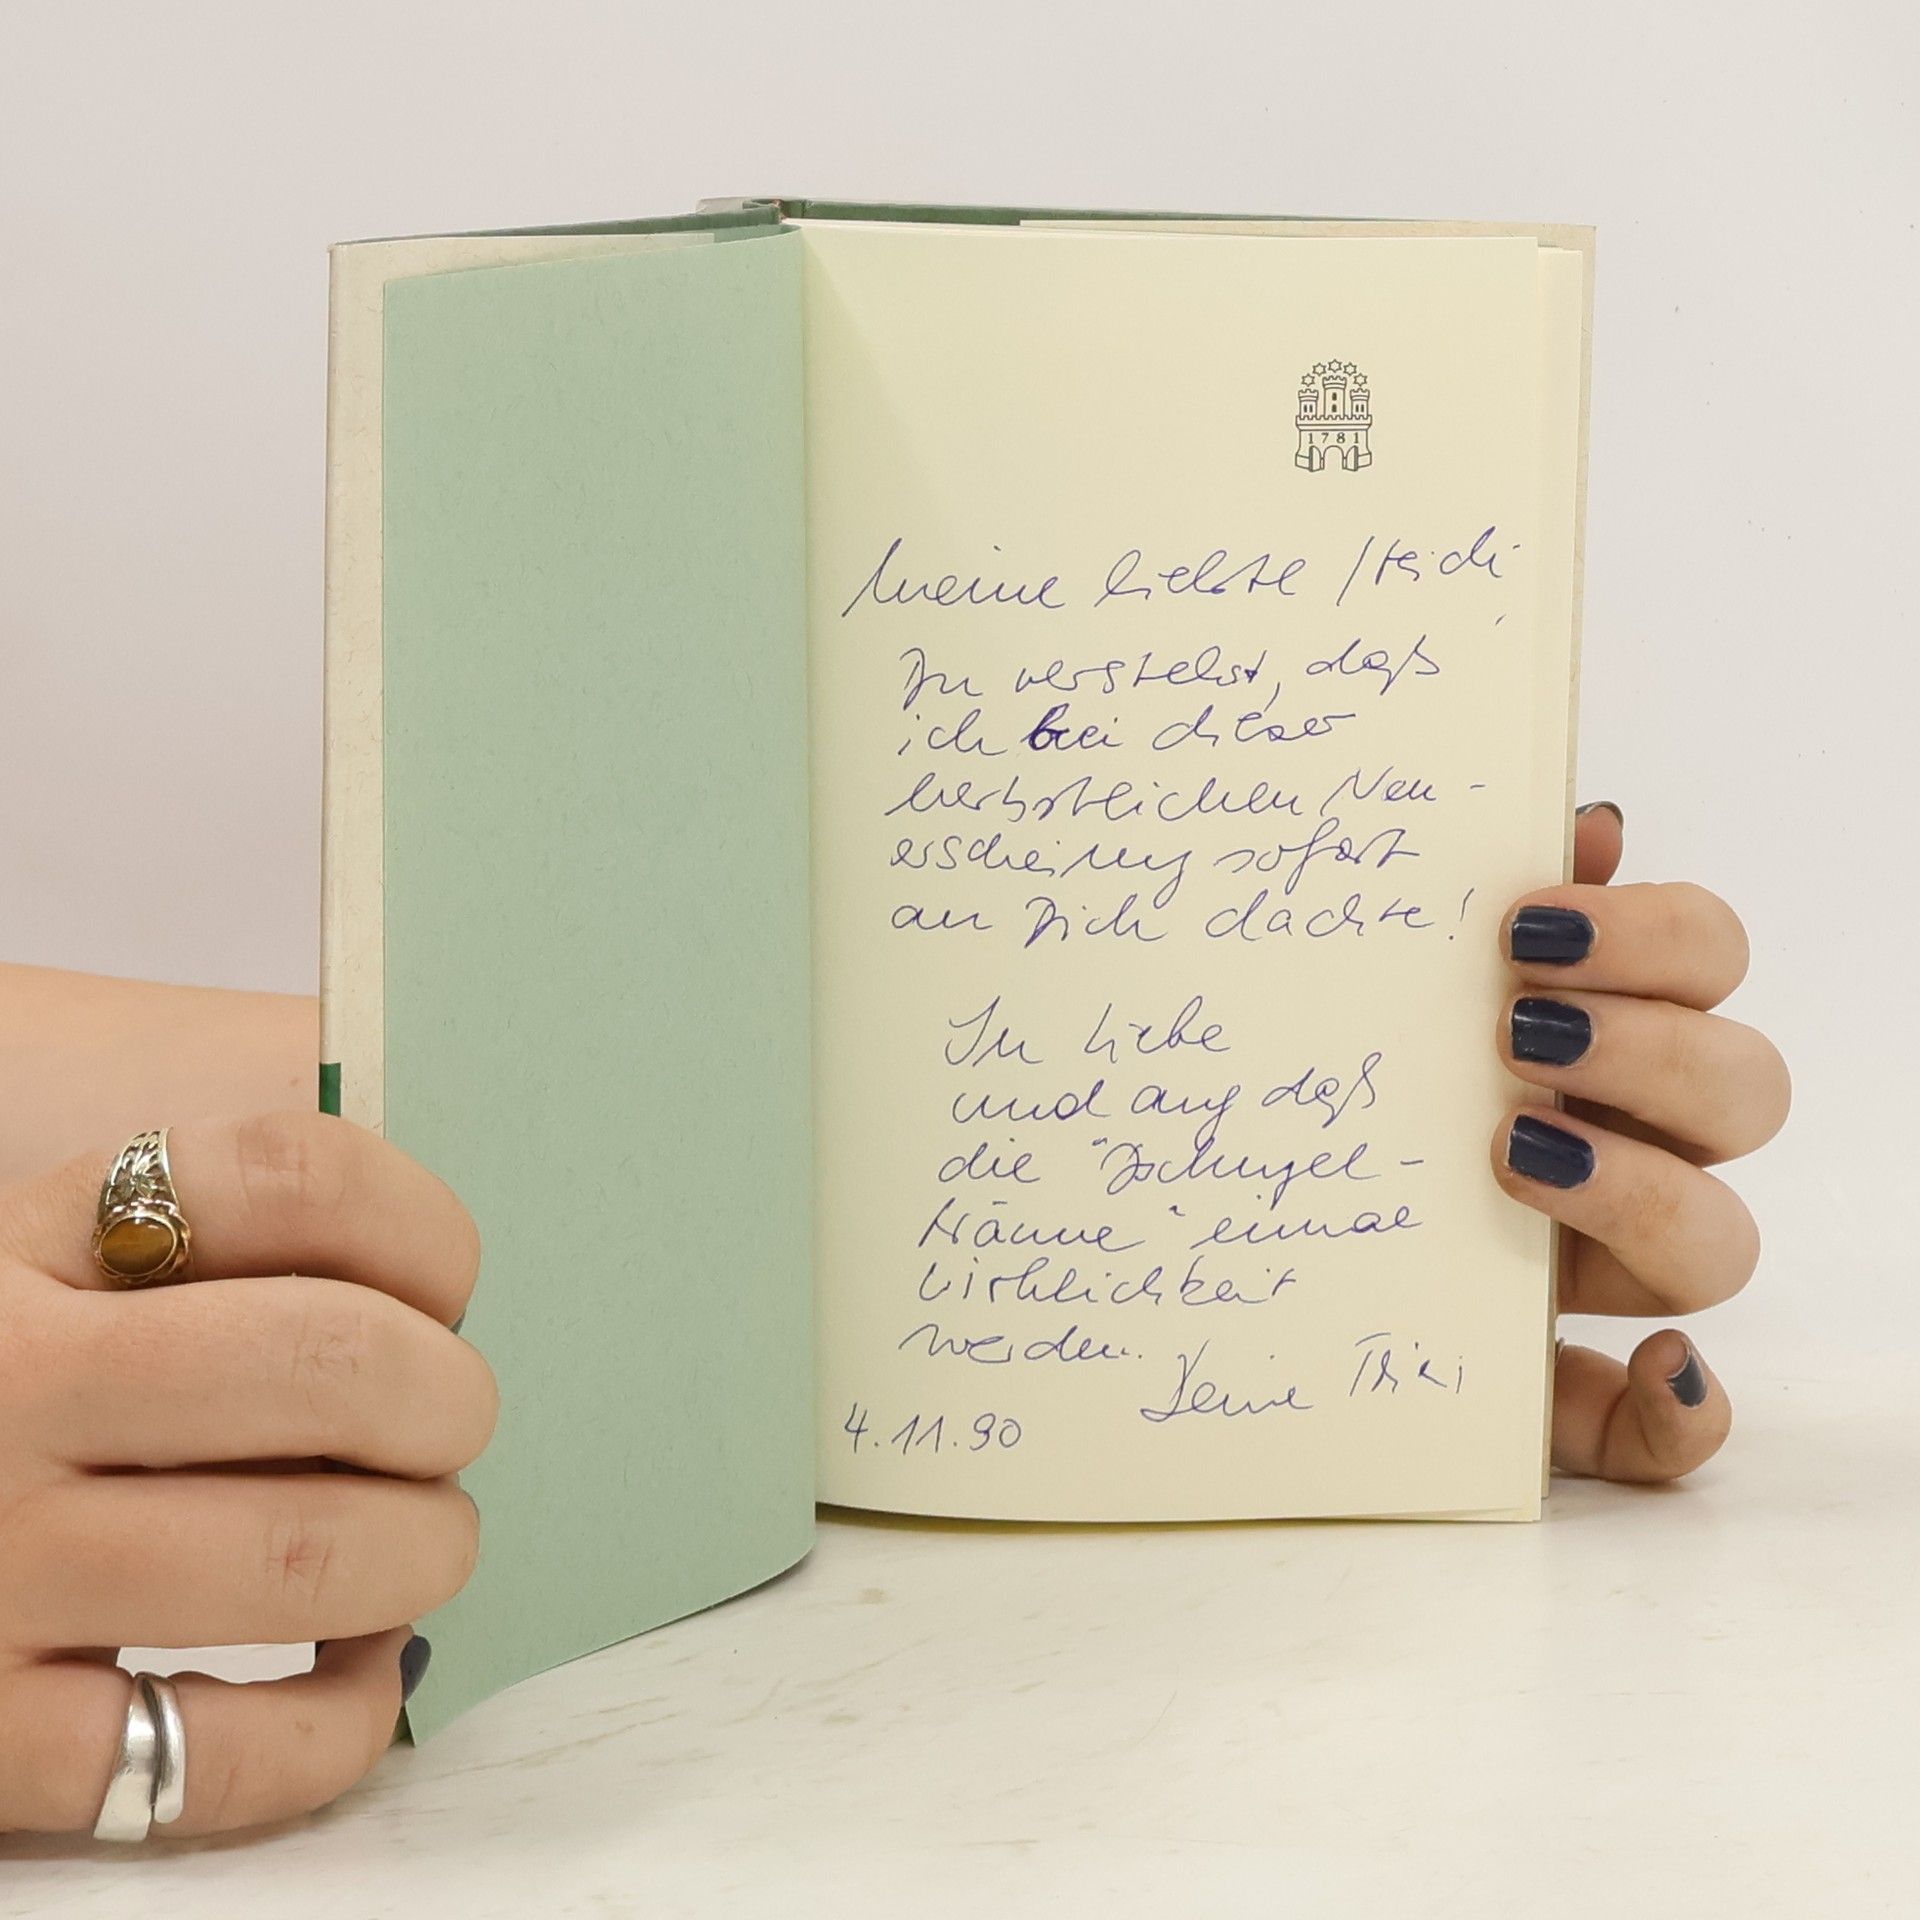 1781
Meine liebste Heidi,
Du verstehst, daß
ich bei dieser
herbstlichen Neu-
erscheinung sofort
an Dich dachte!
In Liebe
und auf daß
die "Dschungel-
träume" einmal
Wirklichkeit
werden.
Deine
4.11.90